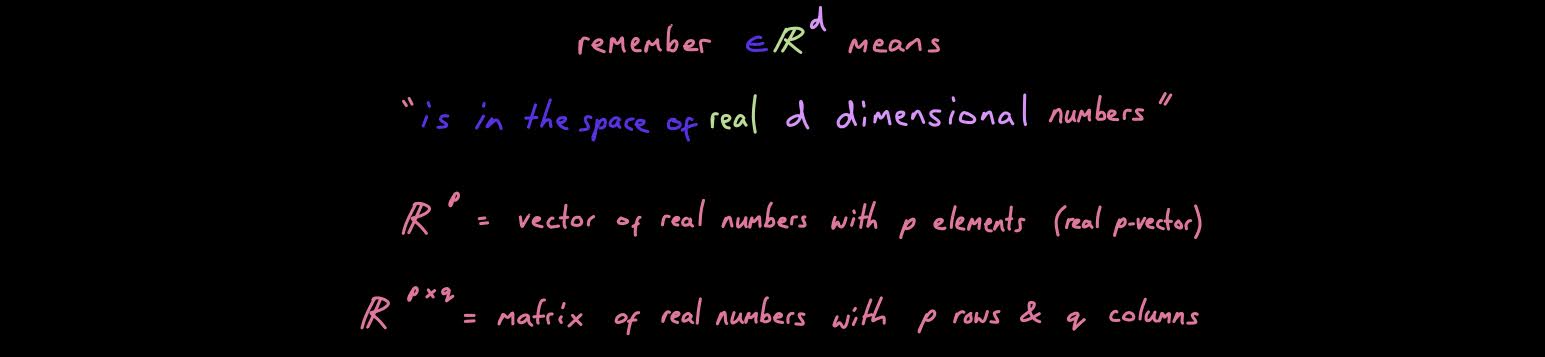 remember ∈ℝᵈ means
"is in the space of real d dimensional numbers"
ℝᵖ = vector of real numbers with p elements (real p-vector)
ℝ^{p×q} = matrix of real numbers with p rows & q columns